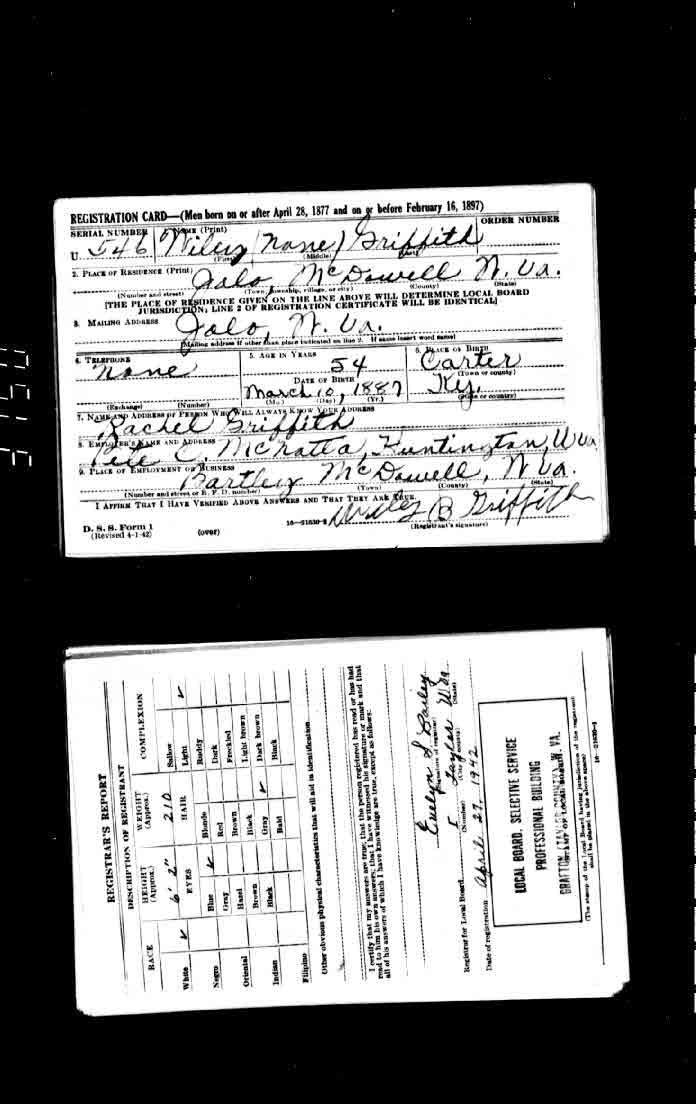 REGISTRATION CARD—(Men born on or after April 28, 1877 and on or before February 16, 1897)
SERIAL NUMBER 1. NAME (Print) ORDER NUMBER
U. 546 Wiley (None) Griffith
(First) (Middle) (Last)
2. PLACE OF RESIDENCE (Print)
Jalo, McDowell W. Va.
(Number and street) (Town, township, village, or city) (County) (State)
[THE PLACE OF RESIDENCE GIVEN ON THE LINE ABOVE WILL DETERMINE LOCAL BOARD
JURISDICTION; LINE 2 OF REGISTRATION CERTIFICATE WILL BE IDENTICAL]
3. MAILING ADDRESS
Jalo, W. Va.
[Mailing address if other than place indicated on line 2. If same insert word same]
4. TELEPHONE 5. AGE IN YEARS 6. PLACE OF BIRTH
None 54 Carter
DATE OF BIRTH (Town or county)
March 10, 1887 Ky.
(Exchange) (Number) (Mo.) (Day) (Yr.) (State or country)
7. NAME AND ADDRESS OF PERSON WHO WILL ALWAYS KNOW YOUR ADDRESS
Rachel Griffith
8. EMPLOYER'S NAME AND ADDRESS
Pete C. Huntington, W Va
9. PLACE OF EMPLOYMENT OR BUSINESS
Bartley McDowell, W Va.
(Number and street or R. F. D. number) (Town) (County) (State)
I AFFIRM THAT I HAVE VERIFIED ABOVE ANSWERS AND THAT THEY ARE TRUE.
Wiley B Griffith
D. S. S. Form 1
(Revised 4-1-42) (over) 16—21630-2 (Registrant's signature)
REGISTRAR'S REPORT
DESCRIPTION OF REGISTRANT
RACE HEIGHT (Approx.) WEIGHT (Approx.) COMPLEXION
6' 2" 210
EYES HAIR
White ✓ Sallow
Light ✓
Negro Blue ✓ Blonde Ruddy
Gray Red Dark
Oriental Hazel Brown Freckled
Brown Black Light brown
Indian Black Gray ✓ Dark brown
Bald Black
Filipino
Other obvious physical characteristics that will aid in identification
I certify that my answers are true; that the person registered has read or has had
read to him his own answers; that I have witnessed his signature or mark and that
all of his answers of which I have knowledge are true, except as follows:
Evelyn S. Bailey
(Signature of registrar)
Registrar for Local Board 5 Taylor W Va
(Number) (City or county) (State)
Date of registration April 27, 1942
LOCAL BOARD, SELECTIVE SERVICE
PROFESSIONAL BUILDING
GRAFTON (TAYLOR COUNTY), W. VA.
(STAMP OF LOCAL BOARD)
(The stamp of the Local Board having jurisdiction of the registrant
shall be placed in the above space)